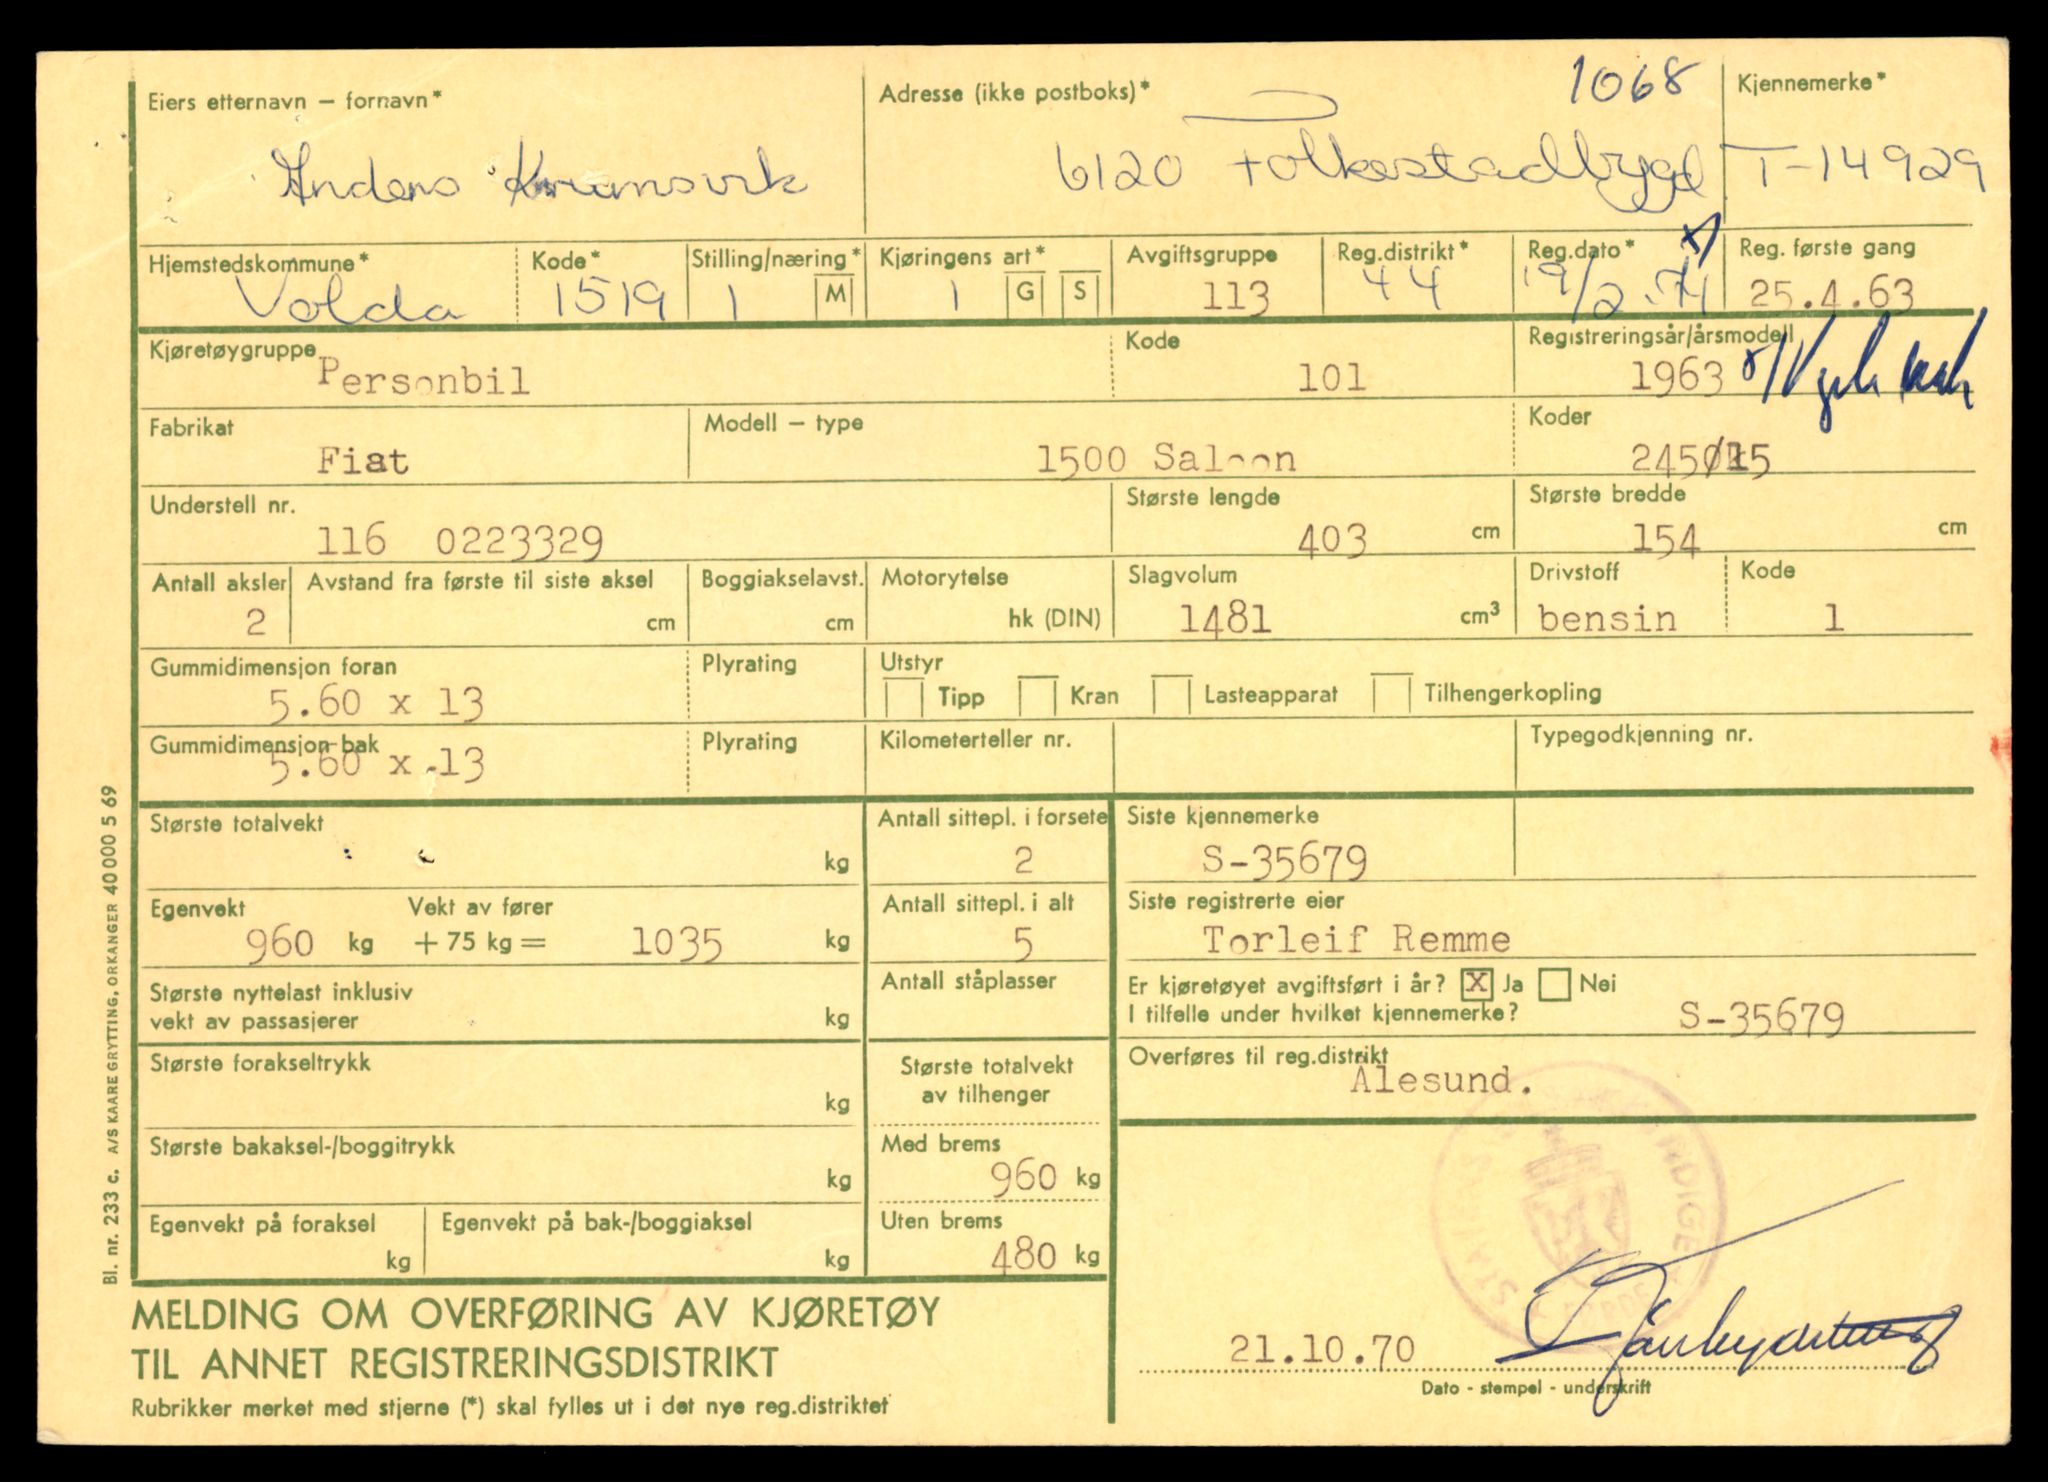 Eiers etternavn – fornavn*
Adresse (ikke postboks)*
1068
Kjennemerke*
Anders
6120 Folkestadbygd
T-14929
Hjemstedskommune*
Kode*
Stilling/næring*
Kjøringens art*
Avgiftsgruppe
Reg.distrikt*
Reg.dato*
Reg. første gang
Volda
1519
1
M
1
G
S
113
44
19/2-71
25.4.63
Kjøretøygruppe
Kode
Registreringsår/årsmodell
Personbil
101
1963
Fabrikat
Modell – type
Koder
Fiat
1500 Saloon
2450/15
Understell nr.
Største lengde
Største bredde
116 0223329
403 cm
154 cm
Antall aksler
Avstand fra første til siste aksel
Boggiakselavst.
Motorytelse
Slagvolum
Drivstoff
Kode
2
cm
cm
hk (DIN)
1481 cm³
bensin
1
Gummidimensjon foran
Plyrating
Utstyr
5.60 x 13
Tipp
Kran
Lasteapparat
Tilhengerkopling
Gummidimensjon bak
Plyrating
Kilometerteller nr.
Typegodkjenning nr.
5.60 x 13
Største totalvekt
Antall sittepl. i forsete
Siste kjennemerke
kg
2
S-35679
Egenvekt
Vekt av fører
Antall sittepl. i alt
Siste registrerte eier
960 kg + 75 kg = 1035 kg
5
Torleif Remme
Største nyttelast inklusiv
vekt av passasjerer
kg
Antall ståplasser
Er kjøretøyet avgiftsført i år? X Ja Nei
I tilfelle under hvilket kjennemerke? S-35679
Største forakseltrykk
kg
Største totalvekt
av tilhenger
Overføres til reg.distrikt
Ålesund.
Største bakaksel-/boggitrykk
kg
Med brems
960 kg
Egenvekt på foraksel
kg
Egenvekt på bak-/boggiaksel
kg
Uten brems
480 kg
MELDING OM OVERFØRING AV KJØRETØY
TIL ANNET REGISTRERINGSDISTRIKT
Rubrikker merket med stjerne (*) skal fylles ut i det nye reg.distriktet
21.10.70
Dato - stempel - underskrift
Bl. nr. 233 c. A/S KAARE GRYTTING, ORKANGER 40 000 5 69